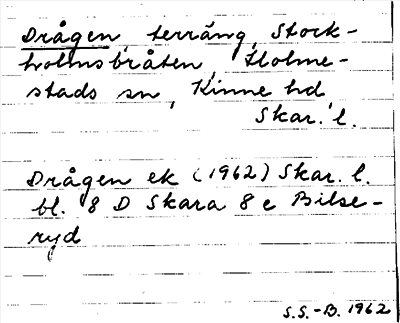 Drågen, terräng, Stock-
holmsbråten, Holme-
stads sn, Kinne hd
Skar. l.
Drågen ek (1962) Skar. l.
bl. 8 D Skara 8 e Bilse-
ryd
S.S.-B. 1962